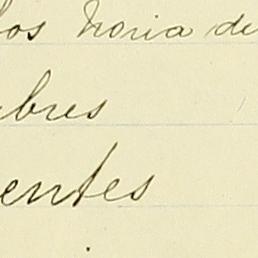 los Noria de
bres
entes